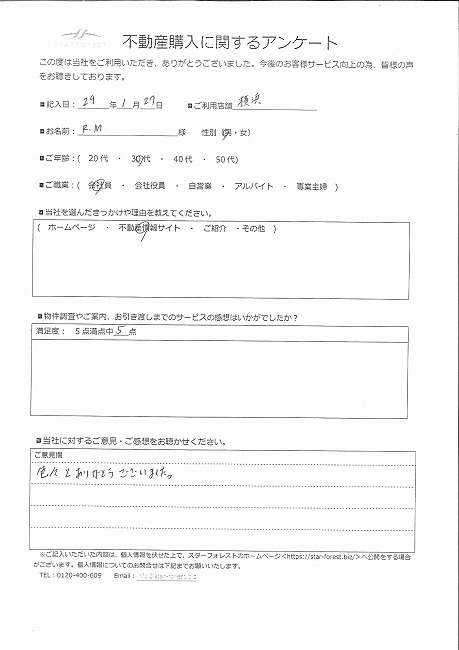 不動産購入に関するアンケート
この度は当社をご利用いただき、ありがとうございました。今後のお客様サービス向上の為、皆様の声
をお聴きしております。
記入日：29年1月27日 ご利用店舗 横浜
お名前：R.M 様 性別（男・女）
ご年齢：( 20代 ・ 30代 ・ 40代 ・ 50代)
ご職業：( 会社員 ・ 会社役員 ・ 自営業 ・ アルバイト ・ 専業主婦 )
当社を選んだきっかけや理由を教えてください。
( ホームページ ・ 不動産情報サイト ・ ご紹介 ・その他 )
物件調査やご案内、お引き渡しまでのサービスの感想はいかがでしたか？
満足度： 5点満点中5点
当社に対するご意見・ご感想をお聴かせください。
ご意見欄
色々とありがとうございました。
※ご記入いただいた内容は、個人情報を伏せた上で、スターフォレストのホームページ<https://star-forest.biz/>へ公開をする場合
がございます。個人情報についてのお問合せは下記までお願いいたします。
TEL：0120-400-609 Email：info@star-forest.biz